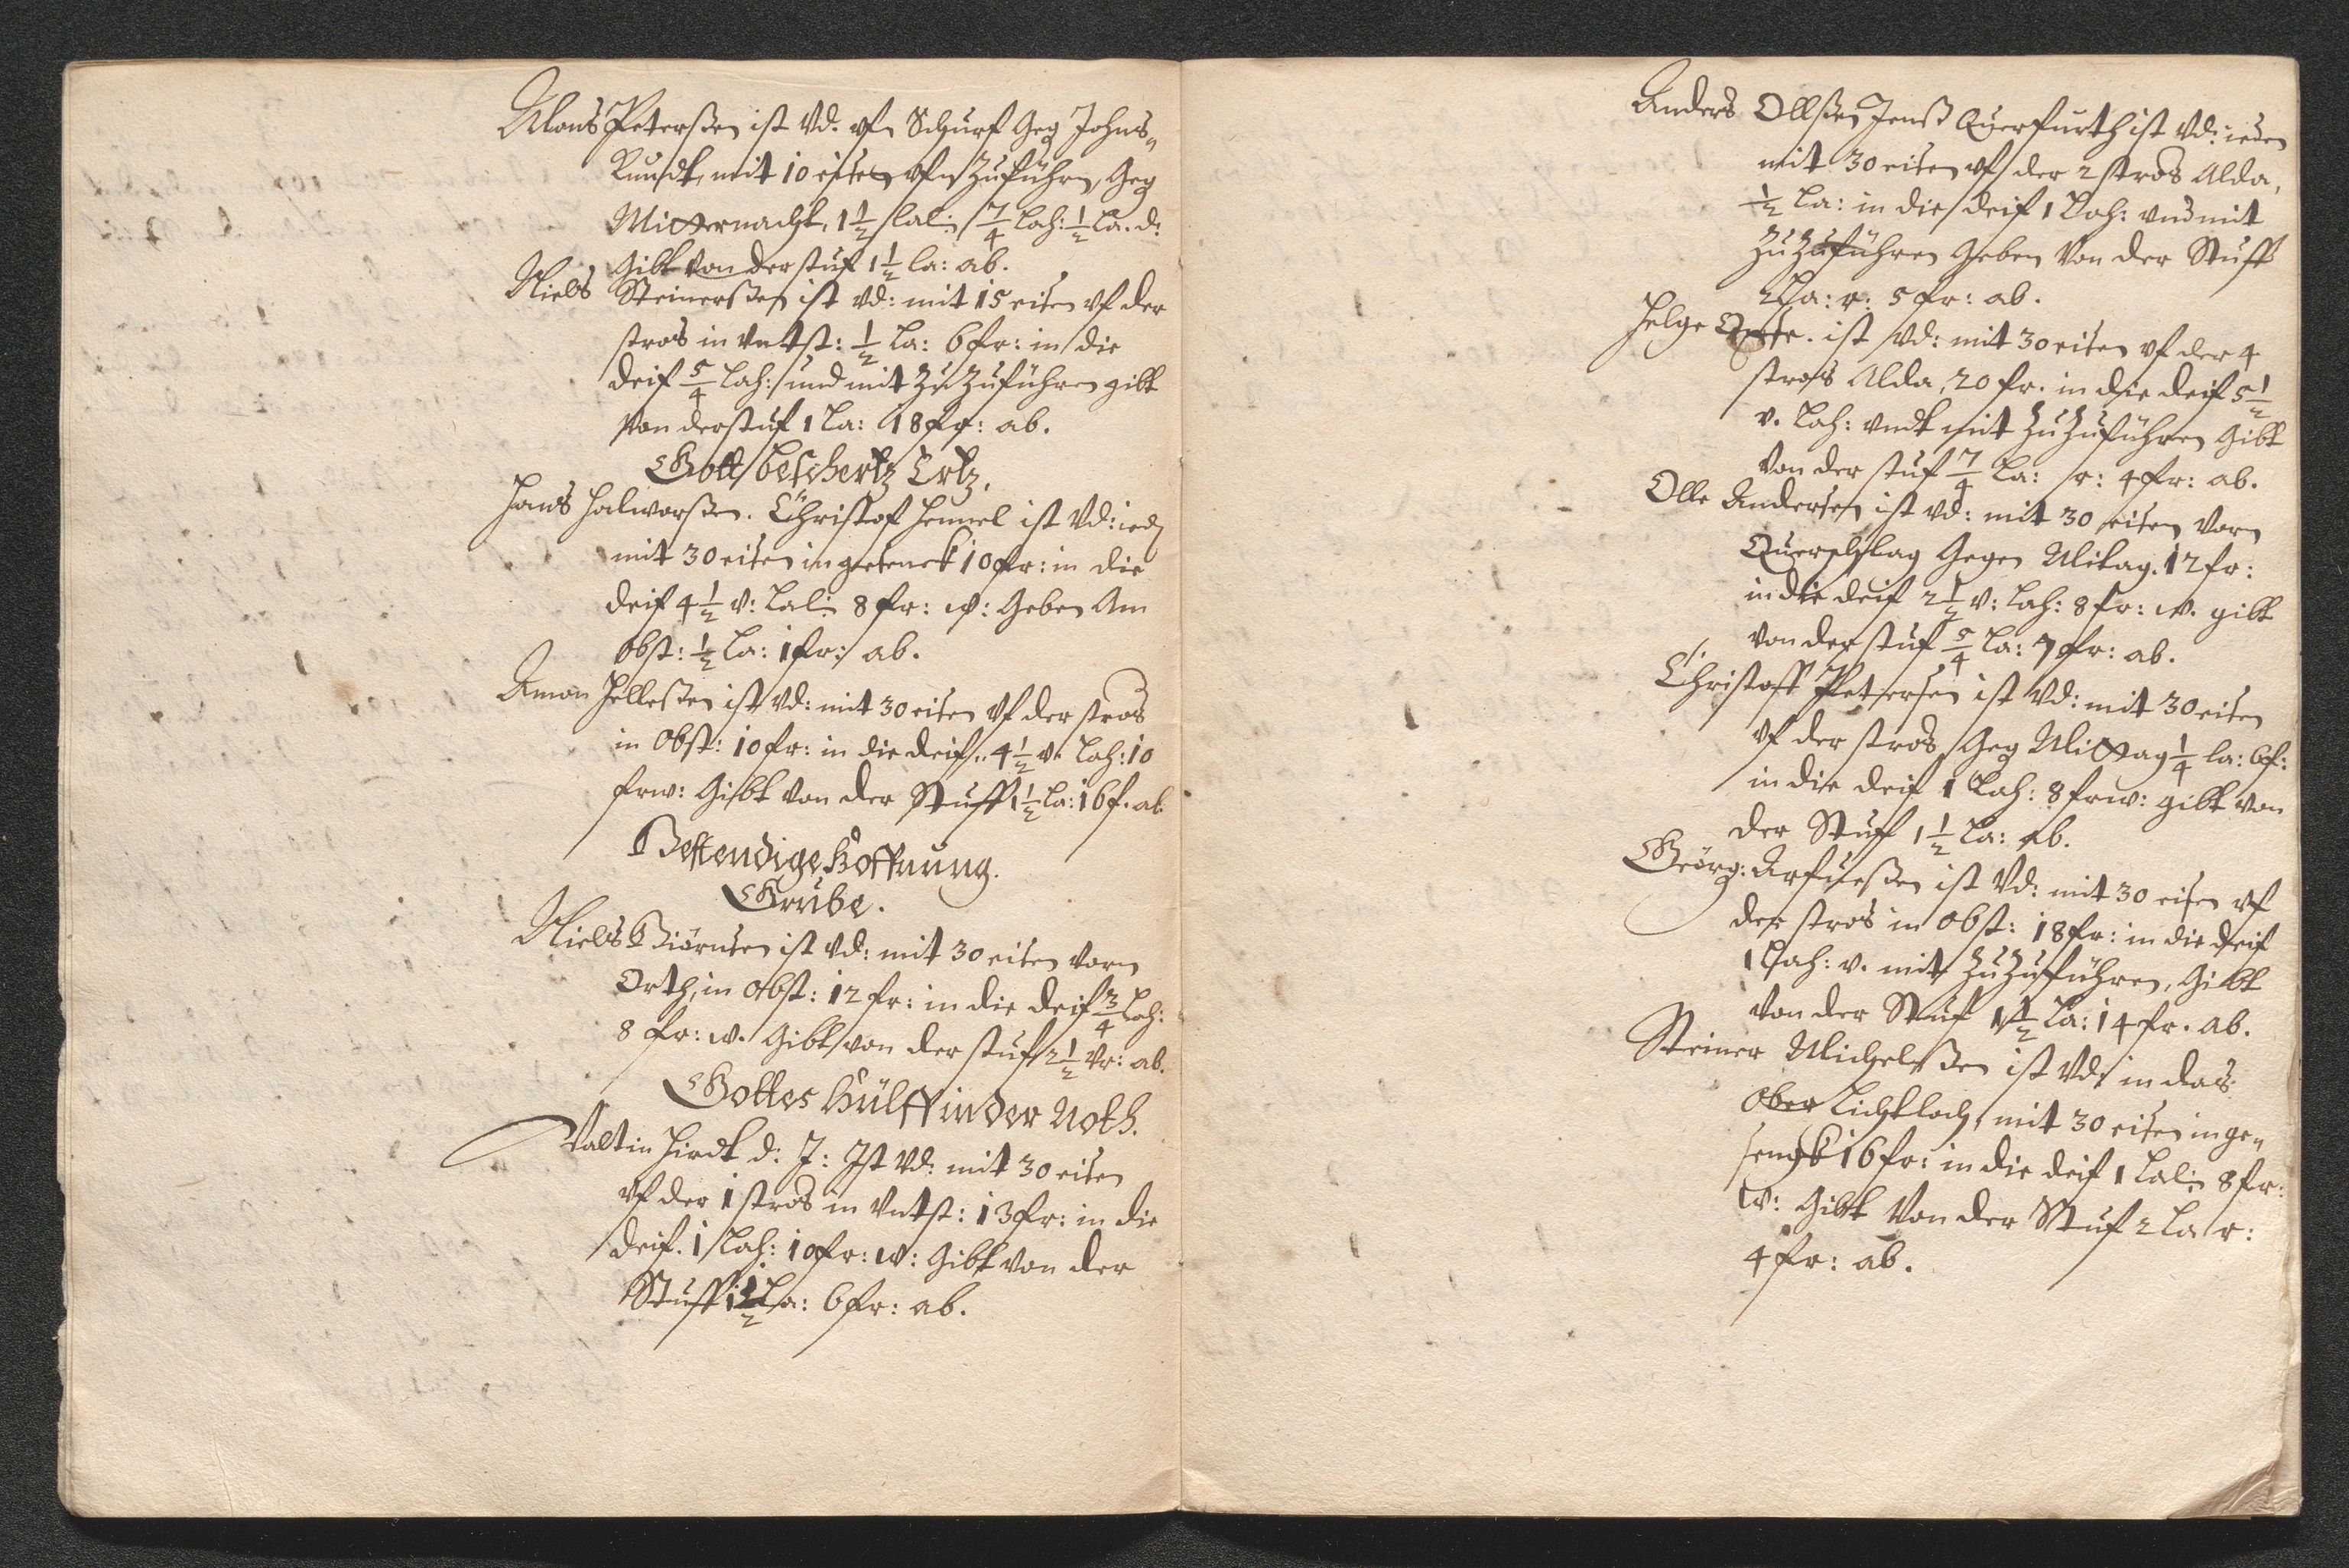 Mons Peterßen ist Vd. vfn Schurf Geg Johns„
Kundt, mit 10 eisen vfn Zuführn, Geg
Mitternacht, 1 1/2 lal: 7/4 lach: 1/2 La. d:
Gibt von der stuf 1 1/2 la: ab.
Niels Steinerßen ist vd: mit 15 eisen vf der
stros in vntst: 1/2 La: 6 fr: in die
deif 5/4 lach: und mit Zu Zuführen gibt
von der stuf 1 La: 18 fr: ab.
Gott bescherts Ertz.
Hans Halworßen. Christof Hennel ist Vd: ied
mit 30 eisen in gesenck 10 fr: in die
deif 4 1/2 v: Lal: 8 fr: w: Geben Am
obst: 1/2 La: 1 fr: ab.
Amon Helleßen ist vd: mit 30 eisen vf der stros
in Obst: 10 fr: in die deif. 4 1/2 v. Lach: 10
frw: Gibt von der Stuff 1 1/2 La: 16 f. ab
Bestendige Hoffnung.
Grube.
Niels Biörnsen ist vd: mit 30 eisen vorn
Orth, in obst: 12 fr: in die deif 3/4 Lach:
8 fr: w. Gibt von der stuf 2 1/2 vr: ab.
Gottes Hülff in der Noth.
Valtin Hirdt d: J: Ist Vd: mit 30 eisen
vf der 1 stros in vntst: 13 fr: in die
deif. 1 Lach: 10 fr: w: Gibt von der
Stuff 1 1/2 La: 6 fr: ab.
Anders Ollßen Jenß Querfurth ist Vd: ieden
mit 30 eisen vf der 2 stros Alda,
1/2 La: in die deif 1 Lach: vnd mit
Zu Zuführen Geben Von der Stuff
2 La: r: 5 fr: ab.
Helge ist Vd: mit 30 eisen vf der 4
stros Alda, 20 fr. in die deif 5 1/2
v. Lach: vndt mit Zu Zuführen Gibt
Von der stuf 7/4 La: r: 4 fr: ab.
Olle Andersen ist vd: mit 30 eisen Vorn
Querschlag Gegen Mitag. 12 fr:
in die deif 2 1/2 v: Lach: 8 fr: w. gibt
von der stuf 5/4 La: 7 fr: ab.
Christoff Petersen ist Vd: mit 30 eisen
vf der stros Geg Mittag 1/4 la: 6 f:
in die deif 1 Lach: 8 frw: gibt von
der Stuf 1 1/2 La: ab.
Geörg: Arfueßen ist Vd: mit 30 eisen vf
der stros in Obst: 18 fr: in die deif
1 Lach: v. mit Zu Zuführen, Gibt
Von der Stuf 1 1/2 La: 14 fr. ab.
Steiner Michelßen ist Vd: in das
Ober Lichtloch, mit 30 eisen in ge„
senck 16 fr: in die deif 1 Lal: 8 fr:
w: Gibt Von der Stuf 2 La r:
4 fr: ab.